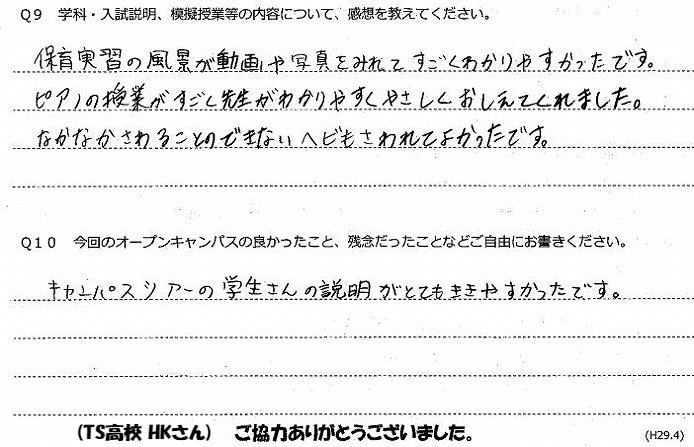 Q9　学科・入試説明、模擬授業等の内容について、感想を教えてください。
保育実習の風景が動画や写真をみれてすごくわかりやすかったです。
ピアノの授業がすごく先生がわかりやすくやさしくおしえてくれました。
なかなかさわることのできないヘビもさわれてよかったです。
Q10　今回のオープンキャンパスの良かったこと、残念だったことなどご自由にお書きください。
キャンパスツアーの学生さんの説明がとてもききやすかったです。
(TS高校 HKさん)　ご協力ありがとうございました。
(H29.4)